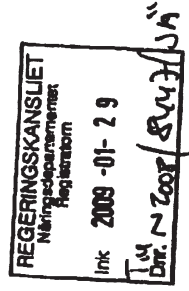 REGERINGSKANSLIET
Näringsdepartementet
Registratorn
Ink 2009 -01- 2 9
Dnr. N 2008/8447/